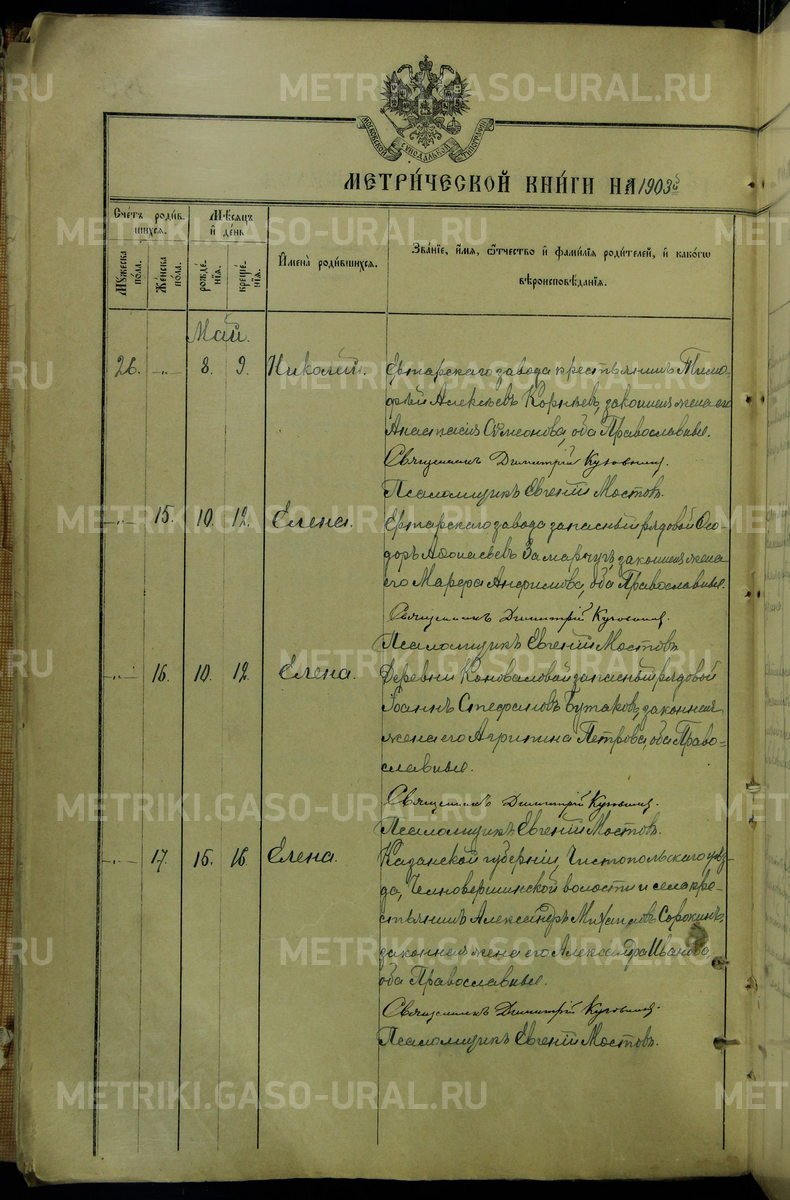 METRIKI.GASO-URAL.RU
МОСКОВСКОЙ СѴНОДАЛЬНОЙ ТИПОГРАФІИ
МЕТРИ́ЧЕСКОЙ КНИ́ГИ НА 1903 г.
Сче́тъ роди́вшихся.
Мѣ́сяцъ и҆ де́нь
Мꙋ́жеска по́ла.
Же́нска по́ла.
рожде́нїѧ.
креще́нїѧ.
И҆мена̀ роди́вшихсѧ.
Зва́нїе, и҆́мѧ, ѻ҆́тчество и҆ фами́лїѧ роди́телей, и҆ како́гѡ
вѣроисповѣ́данїѧ.
Май.
26. -„- 8. 9. Николай. Ертарскаго завода крестьянинъ Тимо-
ѳей Алексѣевъ Корнѣевъ, законная жена его
Анастасія Сѵмеонова, оба Православные.
Священникъ Димитрій
Псаломщикъ Евгеній Мостовъ.
-„- 15. 10. 12. Елена. Ертарскаго завода запасный рядовой Ѳео-
доръ Аѳонасьевъ Замарчуъ, законная жена
его Марѳа Анфимова, оба Православные.
Священникъ Димитрій
Псаломщикъ Евгеній Мостовъ.
-„- 16. 10. 12. Елена. Деревни Коноваловой запасный рядовой
Іоаннъ Стефановъ Бутаковъ, законная
жена его Агрипина Петрова, оба Право-
славные.
Священникъ Димитрій
Псаломщикъ Евгеній Мостовъ.
-„- 17. 15. 16. Елена. Казанской губерніи, Чистопольскаго уѣз-
да, Челновершинской волости и села кре-
стьянинъ Александръ Михаиловъ Сорокинъ,
законная жена его Александра Иванова,
оба Православные.
Священникъ Димитрій
Псаломщикъ Евгеній Мостовъ.